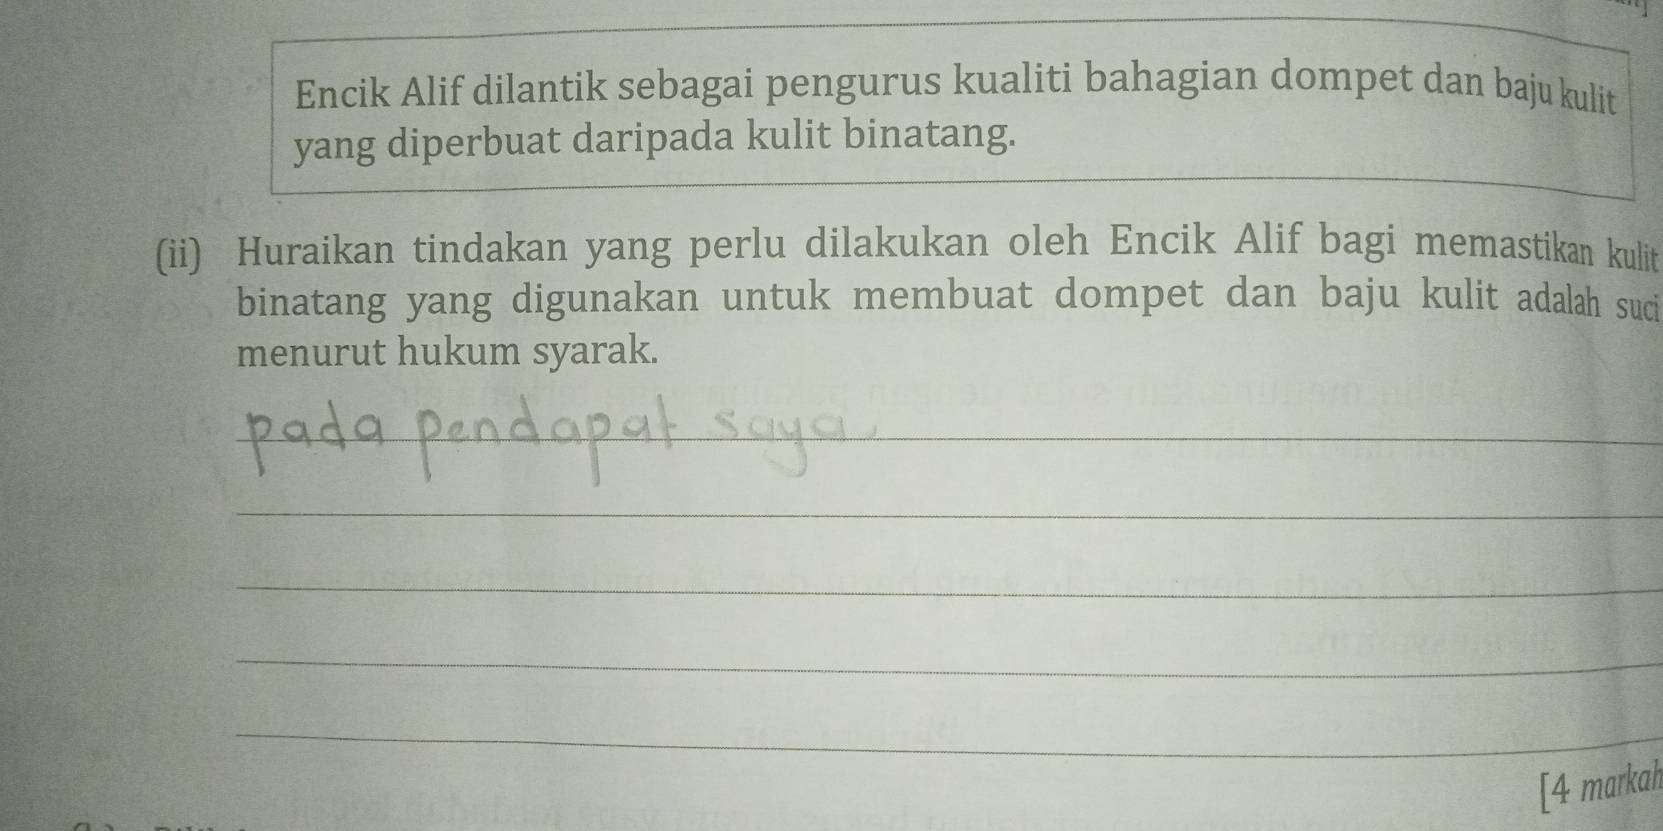 Encik Alif dilantik sebagai pengurus kualiti bahagian dompet dan baju kulit
yang diperbuat daripada kulit binatang.
(ii) Huraikan tindakan yang perlu dilakukan oleh Encik Alif bagi memastikan kulit
binatang yang digunakan untuk membuat dompet dan baju kulit adalah suci
menurut hukum syarak.
pada pendapat saya,
[4 markah